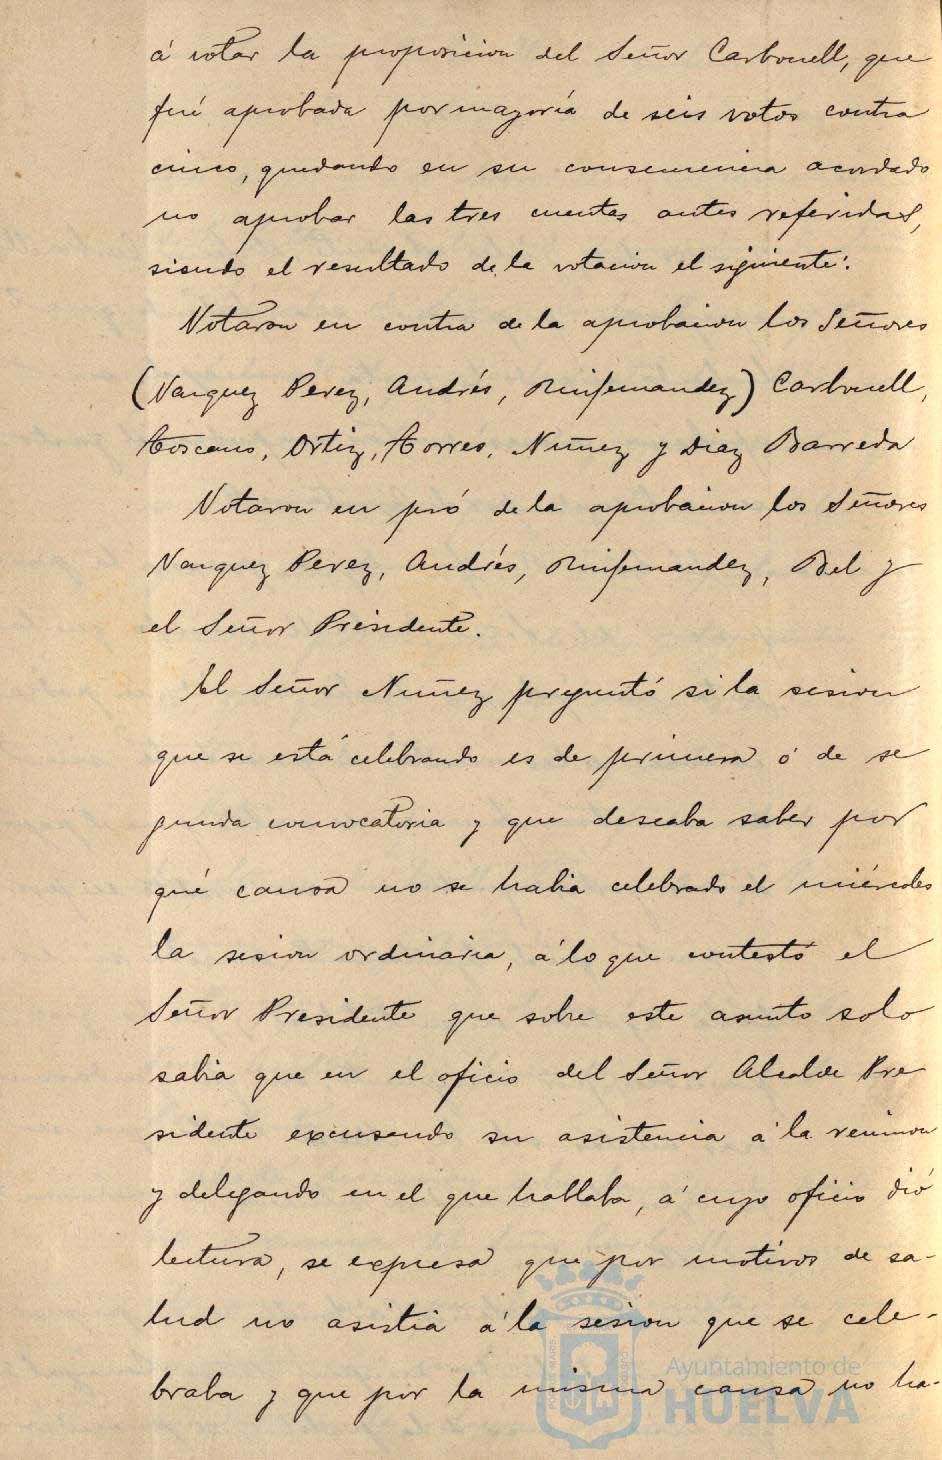 á votar la proposicion del Señor Carbonell, que
fué aprobada por mayoría de seis votos contra
cinco, quedando en su consecuencia acordado
no aprobar las tres cuentas antes referidas,
siendo el resultado de la votacion el siguiente:
Votaron en contra de la aprobacion los Señores
(Vazquez Perez, Andrés, Ruifernandez) Carbonell,
Toscano, Ortiz, Torres, Nuñez y Diaz Barreda
Votaron en pró de la aprobacion los Señores
Vazquez Perez, Andrés, Ruifernandez, Bel y
el Señor Presidente.
El Señor Nuñez preguntó si la sesion
que se está celebrando es de primera ó de se
gunda convocatoria y que deseaba saber por
qué causa no se habia celebrado el miércoles
la sesion ordinaria, á lo que contestó el
Señor Presidente que sobre este asunto solo
sabia que en el oficio del Señor Alcalde Pre
sidente excusando su asistencia á la reunion
y delegando en el que hablaba, á cuyo oficio dió
lectura, se expresa que por motivos de sa-
lud no asistia á la sesion que se cele-
braba y que por la misma causa no ha-
Ayuntamiento de
HUELVA